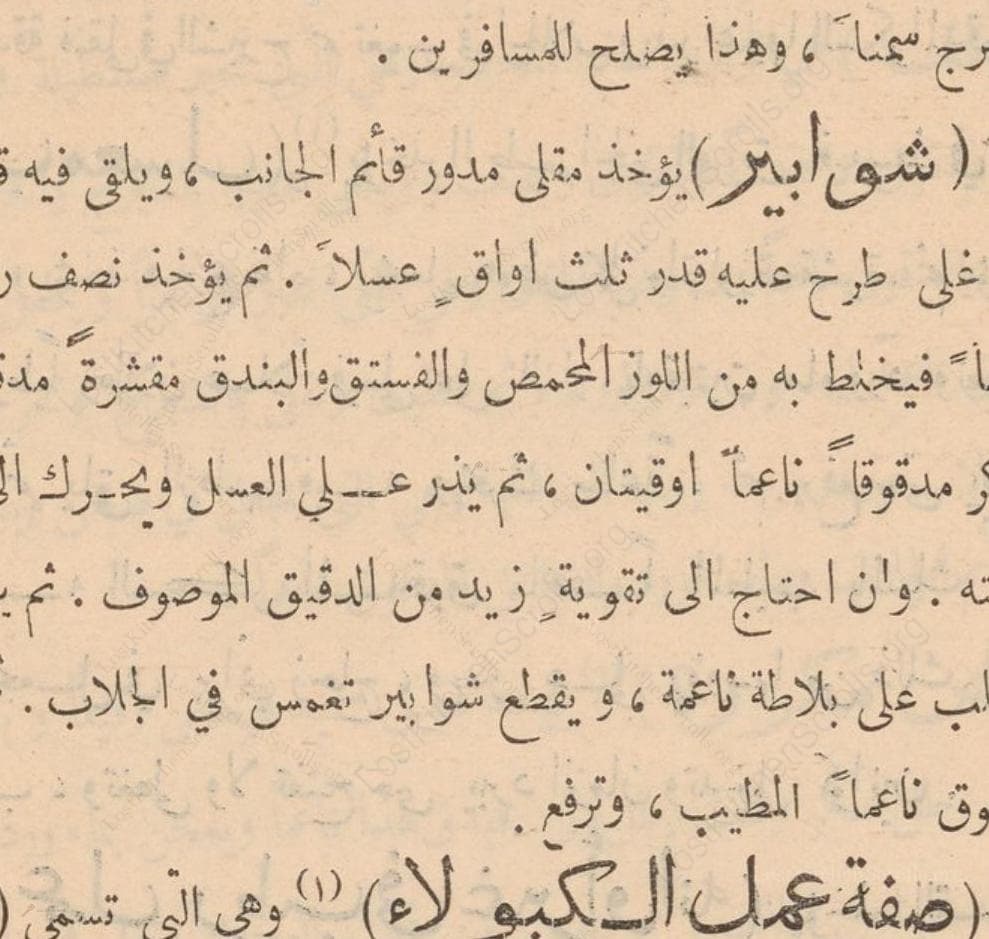 رج سمناً ، وهذا يصلح للمسافرين .
( شوابير ) يؤخذ مقلى مدور قأم الجانب ، ويلقى فيه
غلى طرح عليه قدر ثلث اواقٍ عسلاً . ثم يؤخذ نصف ر
اً فيخلط به من اللوز المحمص والفستق والبندق مقشرةً مدق
كر مدقوقاً ناعماً اوقيتان ، ثم يذر عـــلي العسل ويحـرك الى
ته . وان احتاج الى تقويةٍ زيد من الدقيق الموصوف . ثم ي
لب على بلاطة ناعمة ، و يقطع شوابير تغمس في الجلاب .
وق ناعماً المطيب ، وترفع .
( صفة عمل الـكبولاء ) (١) وهي التي تسمى (